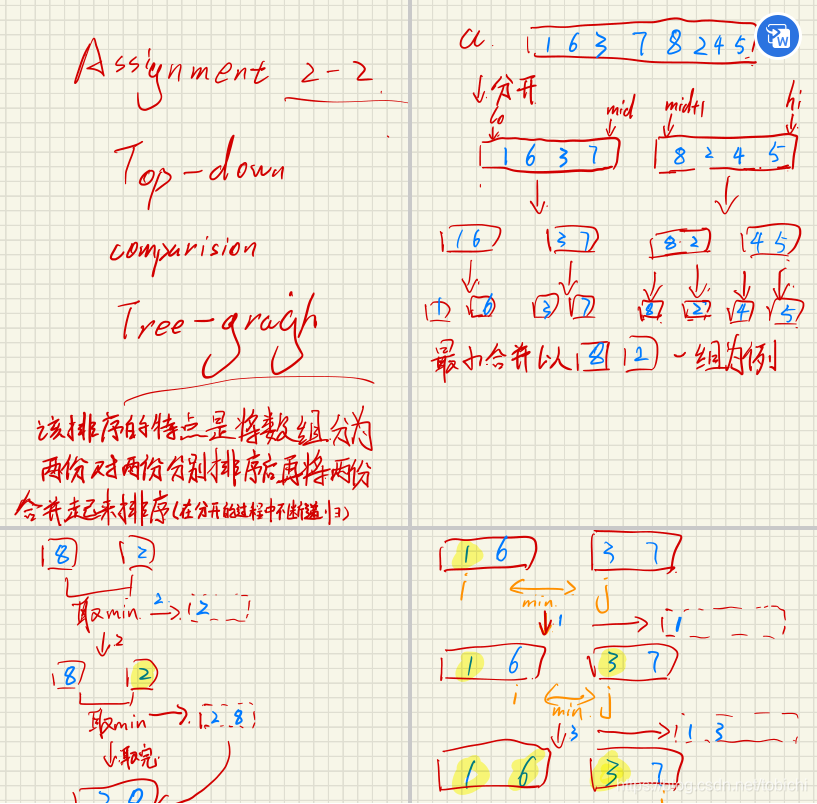 Assignment 2-2
Top-down
comparision
Tree-gragh
该排序的特点是将数组分为
两份对两份分别排序后再将两份
合并起来排序(在分开的过程中不断递归)
a. 1 6 3 7 8 2 4 5
W
↓分开
lo mid mid+1 hi
1 6 3 7 8 2 4 5
1 6 3 7 8 2 4 5
1 6 3 7 8 2 4 5
最小合并以 8 2 一组为例
8 2
取min. 2 → 2
↓2
8 2
取min → 2 8
↓取完
2 8
1 6 3 7
i j
min.
↓1 → 1
1 6 3 7
i j
min.
↓3 → 1 3
1 6 3 7